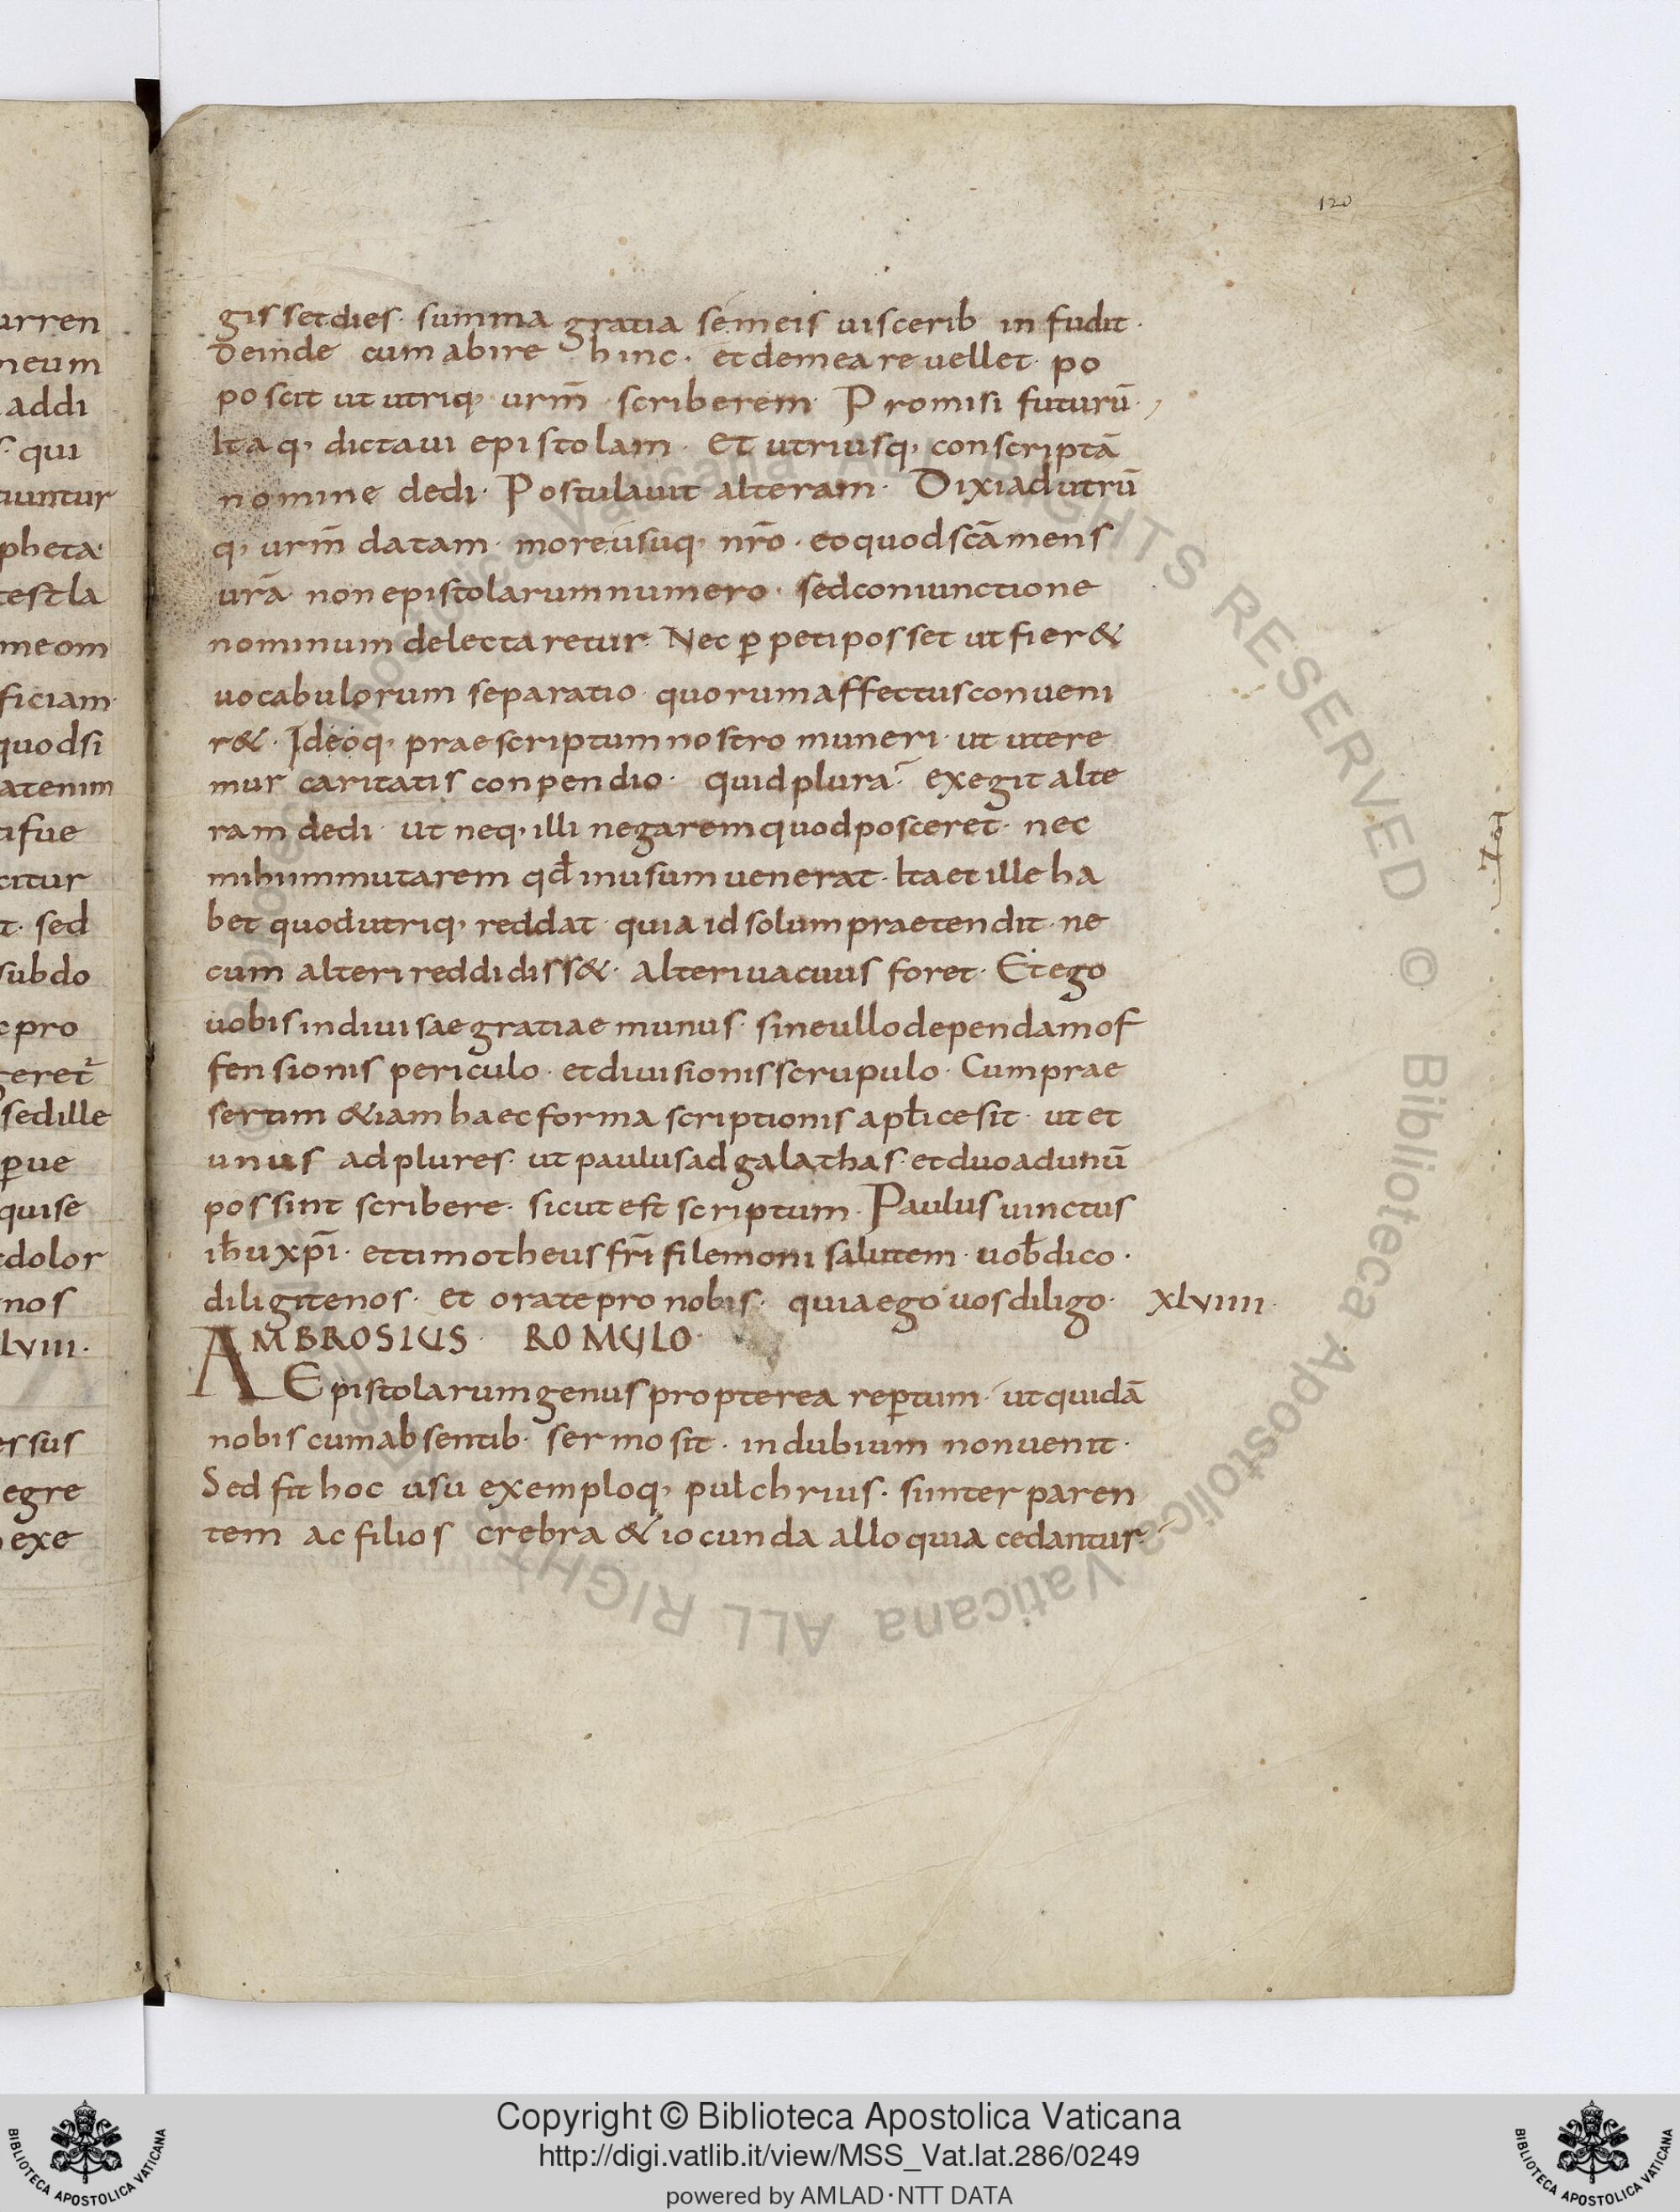 120
urren
neum
addi
s· qui
tuuntur
pheta·
testla
meom
ficiam·
quodsi
atenim
tifue
citur
t· sed
subdo
c pro
geret᷑
sedille
ꝑue
quise
tdolor
nos
lviii·
ersus
egre
exe
gissetdies· summa gratia sémeis uiscerib· in fudit·
Deinde cum abire hinc· et demeare uellet· po
poscit ut utriq, urm̄ scriberem· Promisi futurū·
Itaq, dictaui epistolam· Et utriusq, conscriptā
nomine dedi· Postulauit alteram· Dixi ad utrū
q, urm̄ datam· more usuq, nr̄o· eo quod scā mens
urā non epistolarum numero· sed coniunctione
nominum delectaretur· Nec ꝑpeti posset ut fier&
uocabulorum separatio· quorum affectus conueni
r&· Ideoq, praescriptum nostro muneri· ut utere
mur caritatis conpendio· quid plura? exegit alte
ram dedi· ut neq, illi negarem quod posceret· nec
mihi immutarem qđ in usum uenerat· Ita et ille ha
bet quod utriq, reddat· quia id solum praetendit· ne
cum alteri reddidiss&· alteri uacuus foret· Et ego
uobis indiuisae gratiae munus· sine ullo dependam of
fensionis periculo· et diuisionis scrupulo· Cum prae
sertim &iam haec forma scriptionis apłice sit· ut et
unus ad plures· ut paulus ad galathas· et duo ad unū
possint scribere· sicut est scriptum· Paulus uinctus
ihu xpī· et timotheus fr̄i filemoni salutem· uob dico·
diligite nos· et orate pro nobis· quia ego uos diligo· xlviiii·
AMBROSIUS· ROMULO·
Epistolarum genus propterea reꝑtum· ut quidā
nobis cum absentib· sermo sit· in dubium non uenit·
Sed fit hoc usu exemploq, pulchrius· si inter paren
tem ac filios crebra & iocunda alloquia cedantur·
Copyright © Biblioteca Apostolica Vaticana
http://digi.vatlib.it/view/MSS_Vat.lat.286/0249
powered by AMLAD·NTT DATA
BIBLIOTECA APOSTOLICA VATICANA
BIBLIOTECA APOSTOLICA VATICANA